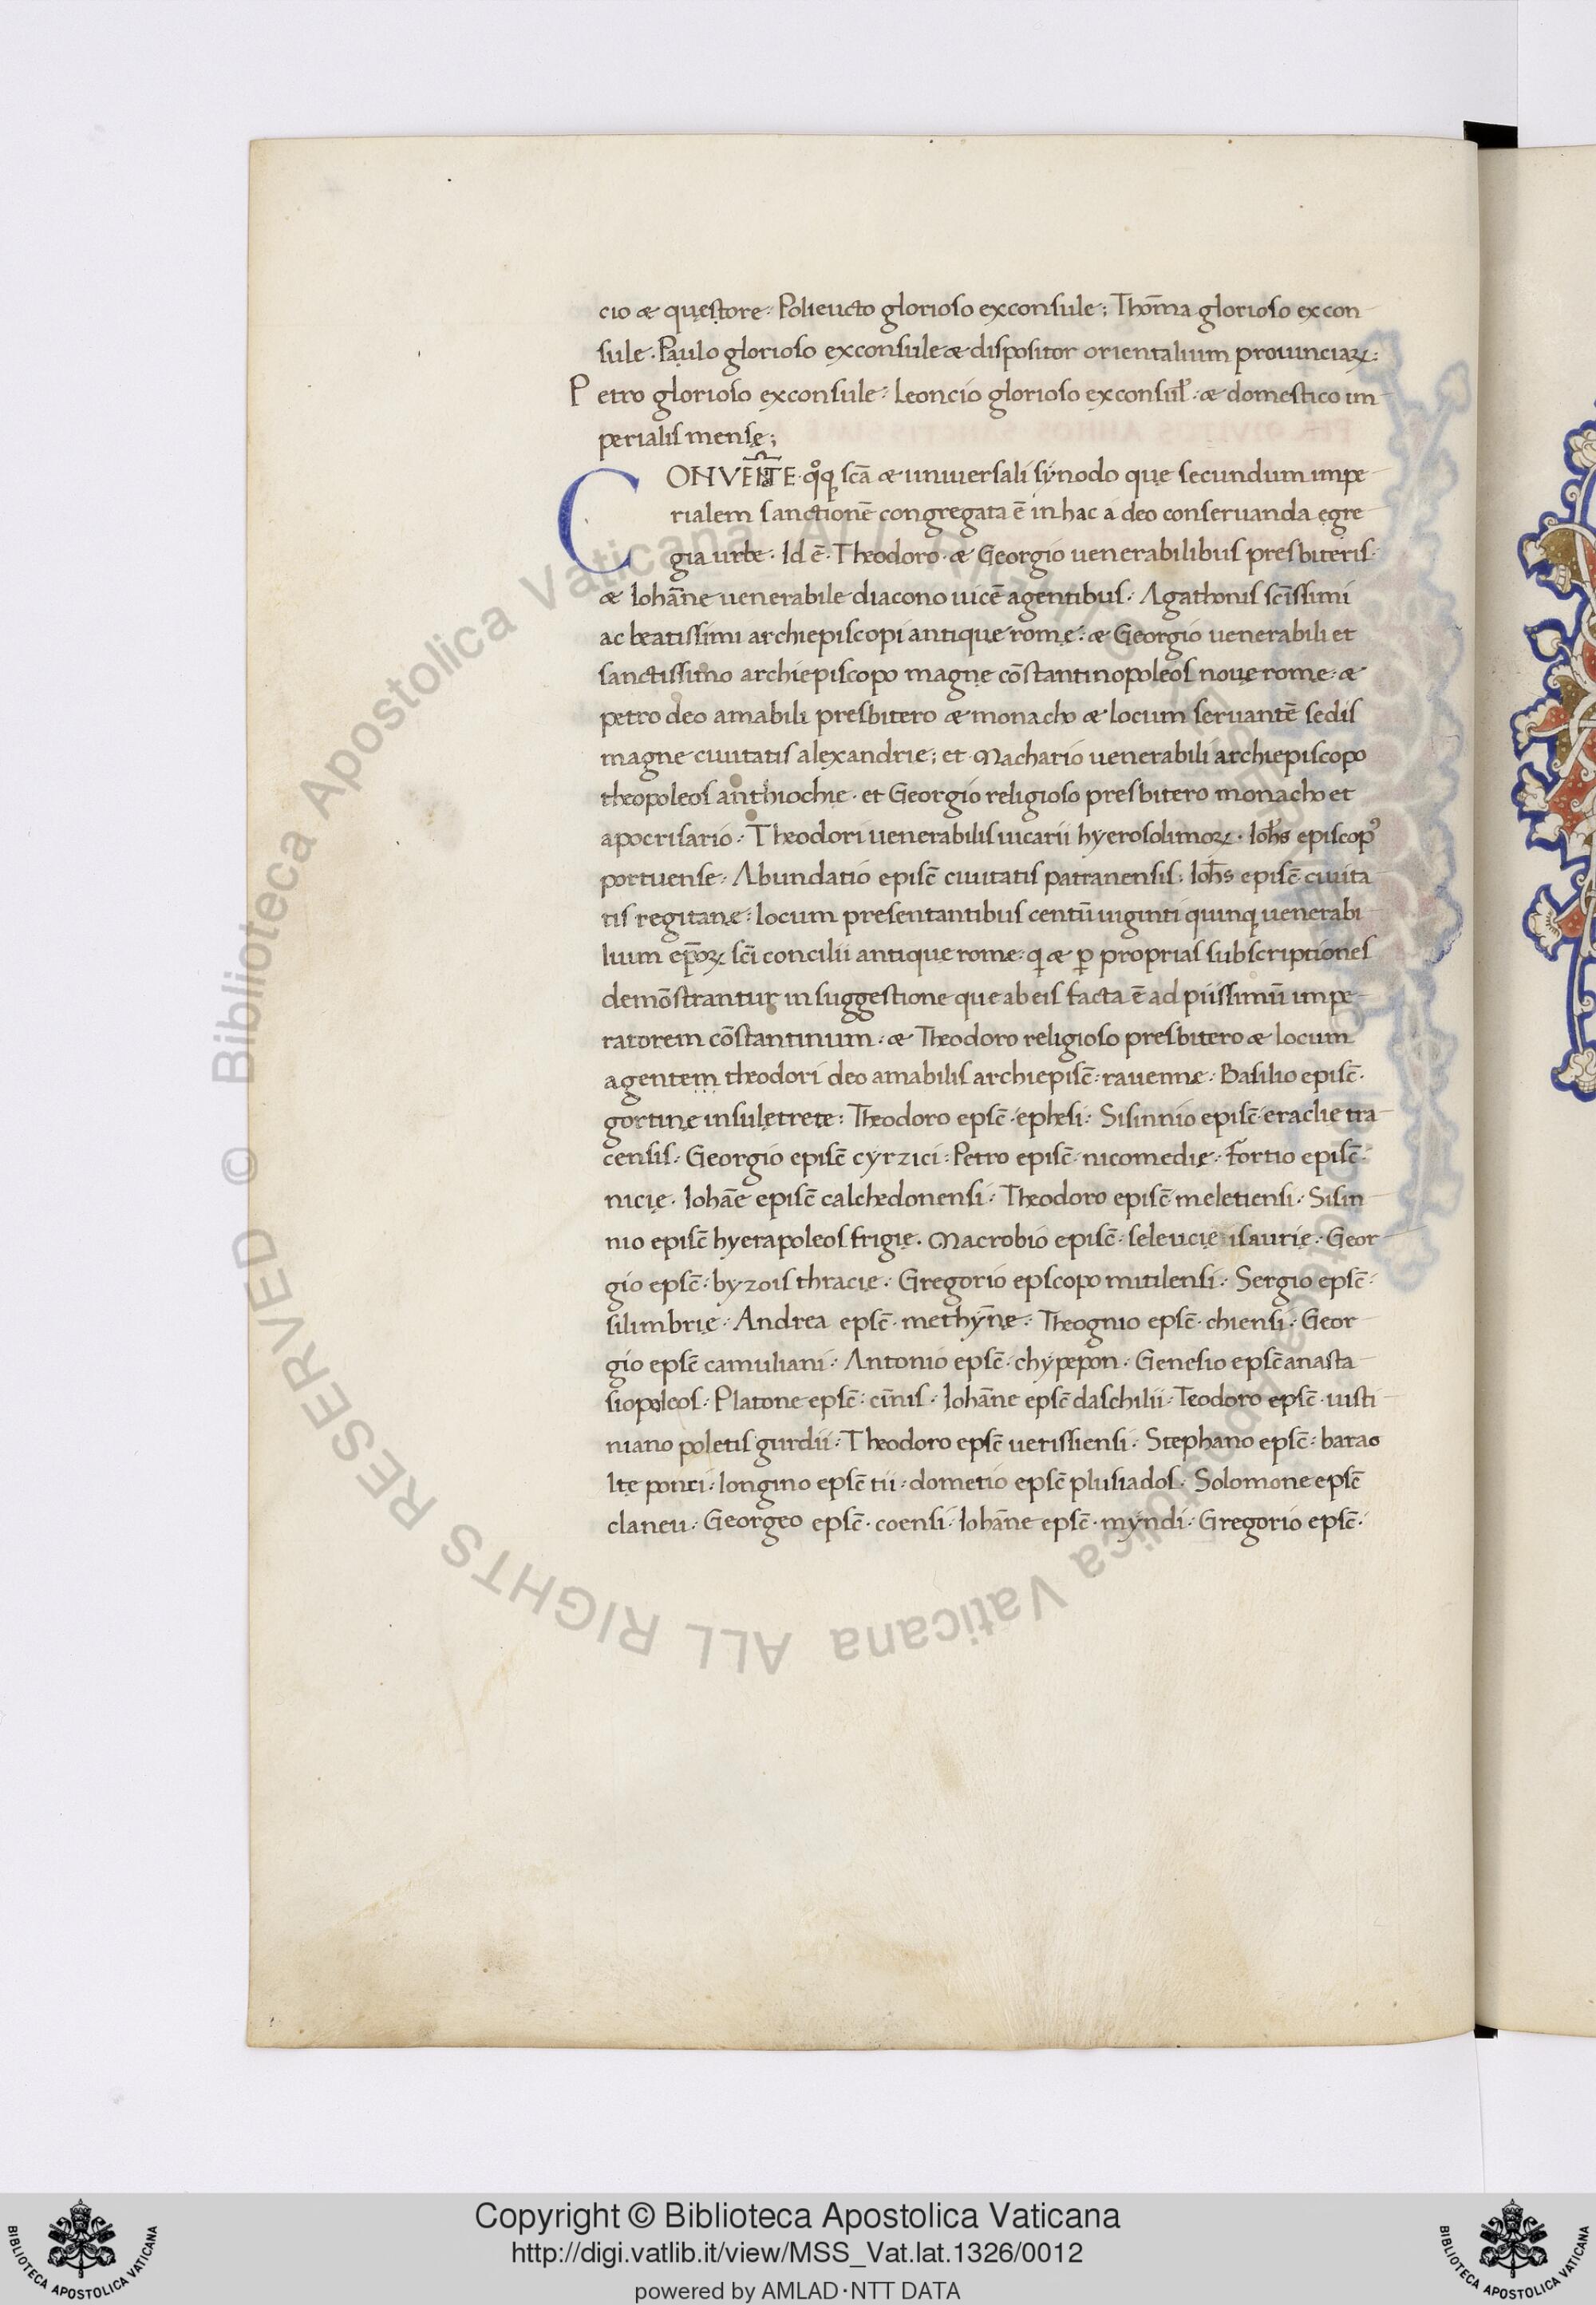 cio æ questore. Polieucto glorioso exconsule; Thom̄a glorioso excon
sule. Paulo glorioso exconsule æ dispositor orientalium prouinciaꝝ:
Petro glorioso exconsule. Leoncio glorioso exconsul̉. æ domestico im
perialis mensę;
CONVENTE. qͦqꝫ scā æ uniuersali synodo que secundum impe
rialem sanctionē congregata ē in hac a deo conseruanda egre
gia urbe. Id ē. Theodoro. æ Georgio uenerabilibus presbiteris.
æ Iohāne uenerabile diacono uicē agentibus. Agathonis scīssimi
ac beatissimi archiepiscopi antique romę. æ Georgio uenerabili et
sanctissimo archiepiscopo magnę cōstantinopoleos nouę rome. æ
petro deo amabili presbitero æ monacho æ locum seruantē sedis
magne ciuitatis alexandrie; et Machario uenerabili archiepiscopo
theopoleos anthiochię. et Georgio religioso presbitero monacho et
apocrisario. Theodori uenerabilis uicarii hyerosolimoꝝ. Ioh̄s episcopꝰ
portuense. Abundatio episc̄ ciuitatis patranensis. Ioh̄s episc̄ ciuita
tis regitanę. locum presentantibus centū uiginti quinqꝫ uenerabi
lium ep̄oꝝ sc̄i concilii antique rome. q æ ꝑ proprias subscriptiones
demōstrantur in suggestione que ab eis facta ē ad piissimū impe
ratorem cōstantinum. æ Theodoro religioso presbitero æ locum
agentem theodori deo amabilis archiepisc̄. rauennę. Basilio episc̄.
gortinę insulę trete: Theodoro epsc̄. ephesi. Sisinnio episc̄. eraclie tra
censis. Georgio episc̄ cyrzici: Petro episc̄. nicomedię. Fortio episc̄.
nicię. Iohāe episc̄ calchedonensi. Theodoro episc̄ meletiensi. Sisin
nio episc̄ hyerapoleos frigię. Macrobio episc̄. seleucię isaurię. Geor
gio epsc̄. byzois thracię. Gregorio epscopo mitilensi. Sergio epsc̄.
silimbrię. Andrea epsc̄. methyn̄ę. Theognio epsc̄. chiensi. Geor
gio epsc̄ camuliani. Antonio epsc̄. chypepon. Genesio epsc̄ anasta
siopoleos. Platone epsc̄. cin̄is. Iohāne epsc̄ daschilii. Teodoro epsc̄. iusti
niano poletis gurdii. Theodoro epsc̄ uerissiensi. Stephano epsc̄. barao
lte ponti. longino epsc̄ tii. dometio epsc̄ plusiados. Solomone epsc̄
claneu. Georgeo epsc̄. coensi. Iohāne epsc̄. myndi. Gregorio epsc̄.
© Biblioteca Apostolica Vaticana ALL RIGHTS RESERVED
Copyright © Biblioteca Apostolica Vaticana
http://digi.vatlib.it/view/MSS_Vat.lat.1326/0012
powered by AMLAD·NTT DATA
BIBLIOTECA APOSTOLICA VATICANA
BIBLIOTECA APOSTOLICA VATICANA